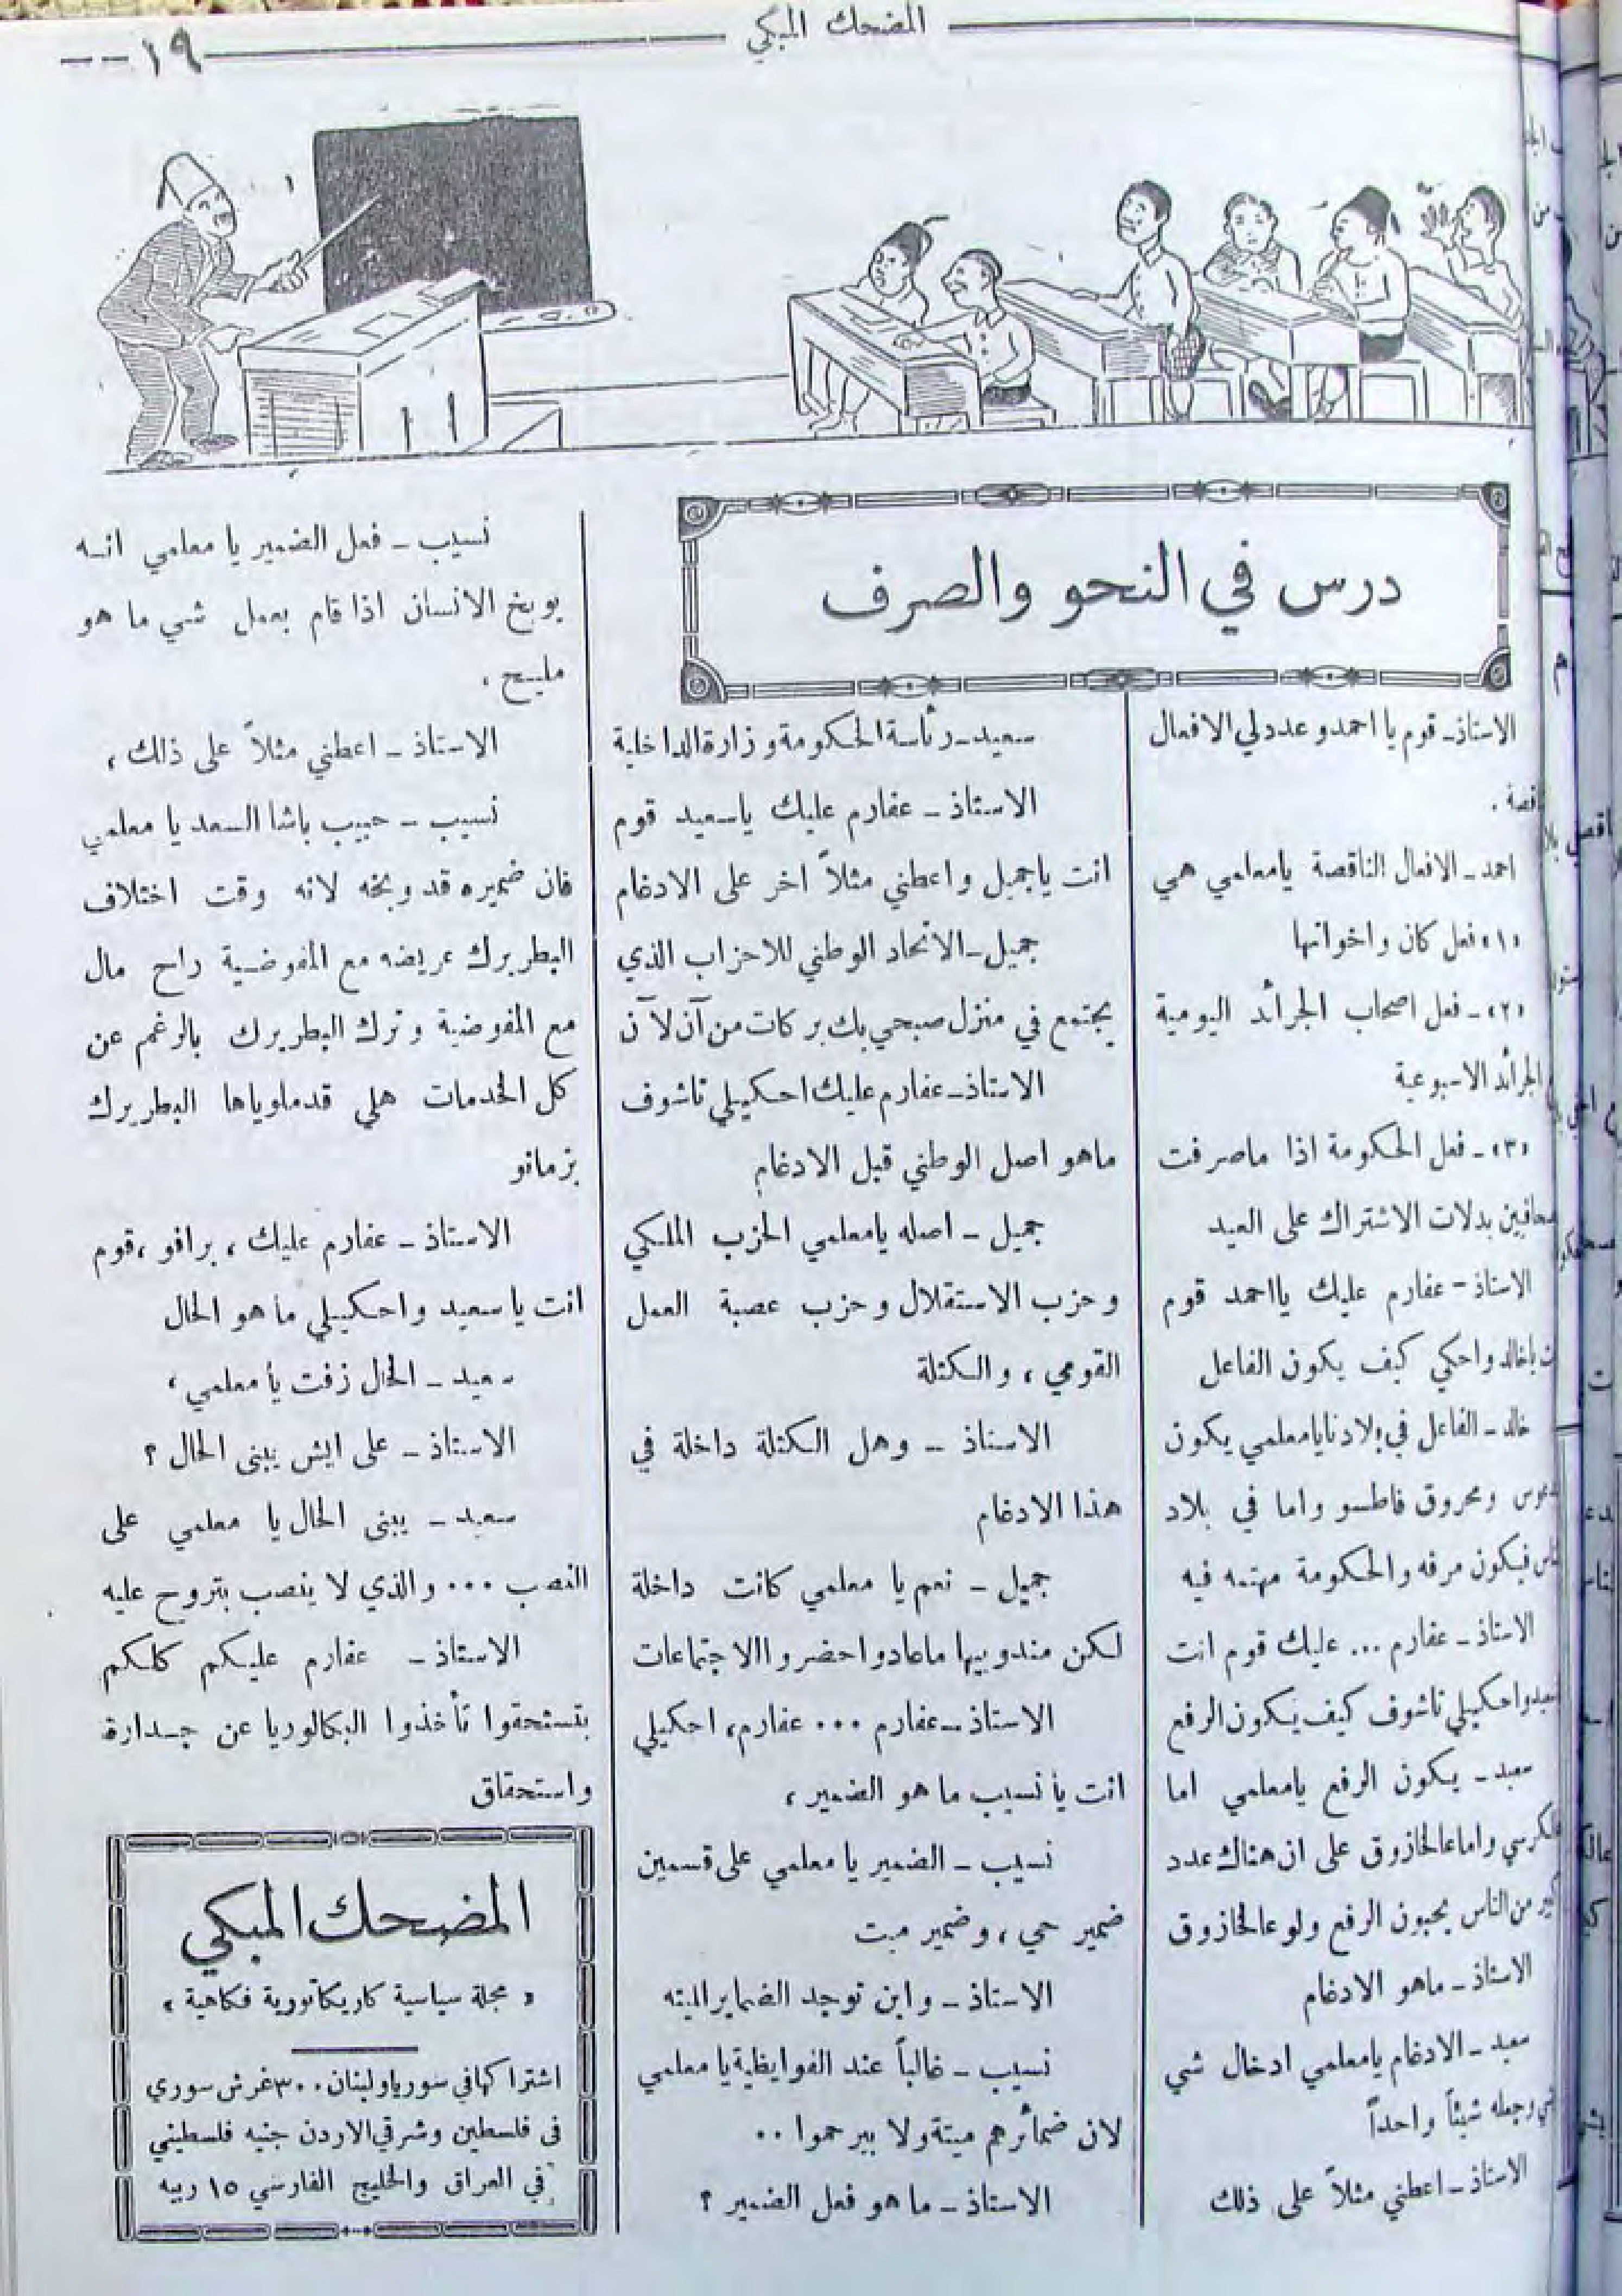 المضحك المبكي
١٩
درس في النحو والصرف
الاستاذ ـ قوم يا احمد وعددلي الافعال
احمد ـ الافعال الناقصة يامعلمي هي
«١» فعل كان واخواتها
«٢» ـ فعل اصحاب الجرائد اليومية
الجرائد الاسبوعية
«٣» ـ فعل الحكومة اذا ماصرفت
بدلات الاشتراك على العيد
الاستاذ ـ عفارم عليك يااحمد قوم
ياخالد واحكي كيف يكون الفاعل
خالد ـ الفاعل في بلادنا يامعلمي يكون
ومحروق فاطسو واما في بلاد
فيكون مرفه والحكومة مهتمه فيه
الاستاذ ـ عفارم ... عليك قوم انت
واحكيلي تاشوف كيف يكون الرفع
سعيد ـ يكون الرفع يامعلمي اما
واما عالخازوق على ان هناك عدد
من الناس يحبون الرفع ولو عالخازوق
الاستاذ ـ ماهو الادغام
سعيد ـ الادغام يامعلمي ادخال شي
وجعله شيئاً واحداً
الاستاذ ـ اعطني مثلاً على ذلك
سعيد ـ رئاسة الحكومة وزارة الداخلية
الاستاذ ـ عفارم عليك ياسعيد قوم
انت ياجميل واعطني مثلاً اخر على الادغام
جميل ـ الاتحاد الوطني للاحزاب الذي
يجتمع في منزل صبحي بك بركات من آن لآن
الاستاذ ـ عفارم عليك احكيلي تاشوف
ماهو اصل الوطني قبل الادغام
جميل ـ اصله يامعلمي الحزب الملكي
وحزب الاستقلال وحزب عصبة العمل
القومي ، والكتلة
الاستاذ ـ وهل الكتلة داخلة في
هذا الادغام
جميل ـ نعم يا معلمي كانت داخلة
لكن مندوبيها ماعادوا حضروا الاجتماعات
الاستاذ ـ عفارم ... عفارم، احكيلي
انت يا نسيب ما هو الضمير ،
نسيب ـ الضمير يا معلمي على قسمين
ضمير حي ، وضمير ميت
الاستاذ ـ واين توجد الضماير الميته
نسيب ـ غالباً عند الفوايظية يا معلمي
لان ضمائرهم ميتة ولا بيرحموا ..
الاستاذ ـ ما هو فعل الضمير ؟
نسيب ـ فعل الضمير يا معلمي انه
يوبخ الانسان اذا قام بعمل شي ما هو
مليح .
الاستاذ ـ اعطني مثلاً على ذلك ،
نسيب ـ حبيب باشا السعد يا معلمي
فان ضميره قد وبخه لانه وقت اختلاف
البطريرك عريضه مع المفوضية راح مال
مع المفوضية وترك البطريرك بالرغم عن
كل الخدمات هلي قدملوياها البطريرك
بزمانو
الاستاذ ـ عفارم عليك ، برافو ، قوم
انت يا سعيد واحكيلي ما هو الحال
سعيد ـ الحال زفت يا معلمي ،
الاستاذ ـ على ايش يبنى الحال ؟
سعيد ـ يبنى الحال يا معلمي على
النصب ... والذي لا ينصب بتروح عليه
الاستاذ ـ عفارم عليكم كلكم
بتستحقوا تأخذوا البكالوريا عن جدارة
واستحقاق
المضحك المبكي
« مجلة سياسية كاريكاتورية فكاهية »
اشتراكها في سوريا ولبنان ٣٠٠ غرش سوري
في فلسطين وشرقي الاردن جنيه فلسطيني
في العراق والخليج الفارسي ١٥ ربيه